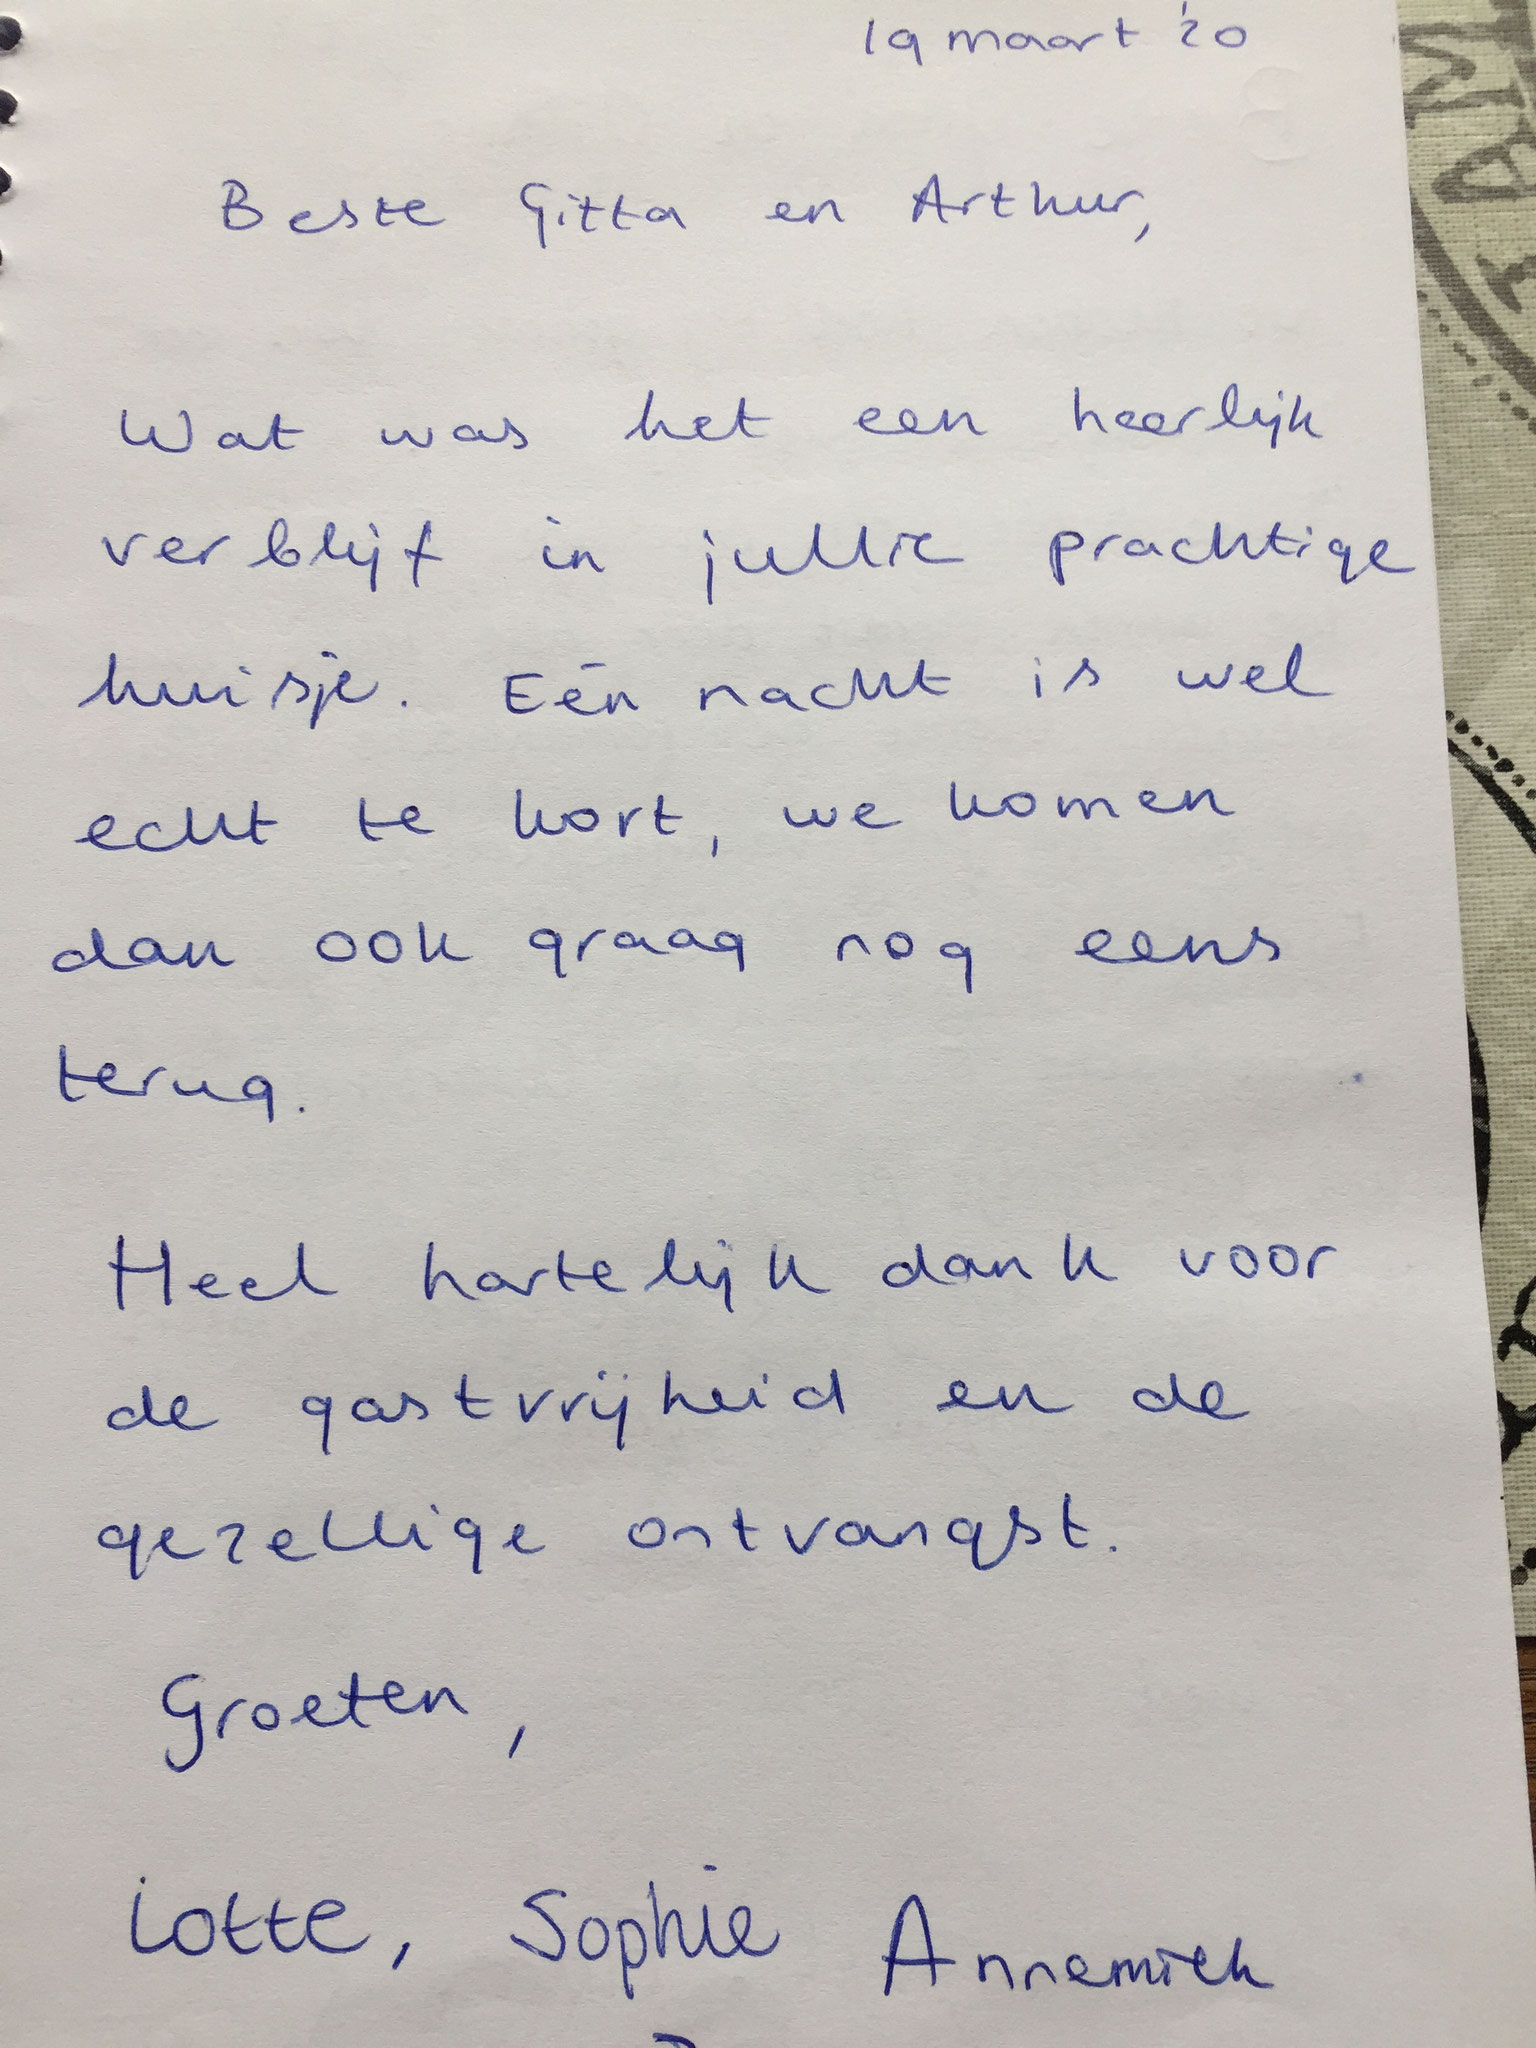 19 maart '20
Beste Gitta en Arthur,
Wat was het een heerlijk
verblijf in jullie prachtige
huisje. Eén nacht is wel
echt te kort, we komen
dan ook graag nog eens
terug.
Heel hartelijk dank voor
de gastvrijheid en de
gezellige ontvangst.
Groeten,
Lotte, Sophie Annemiek